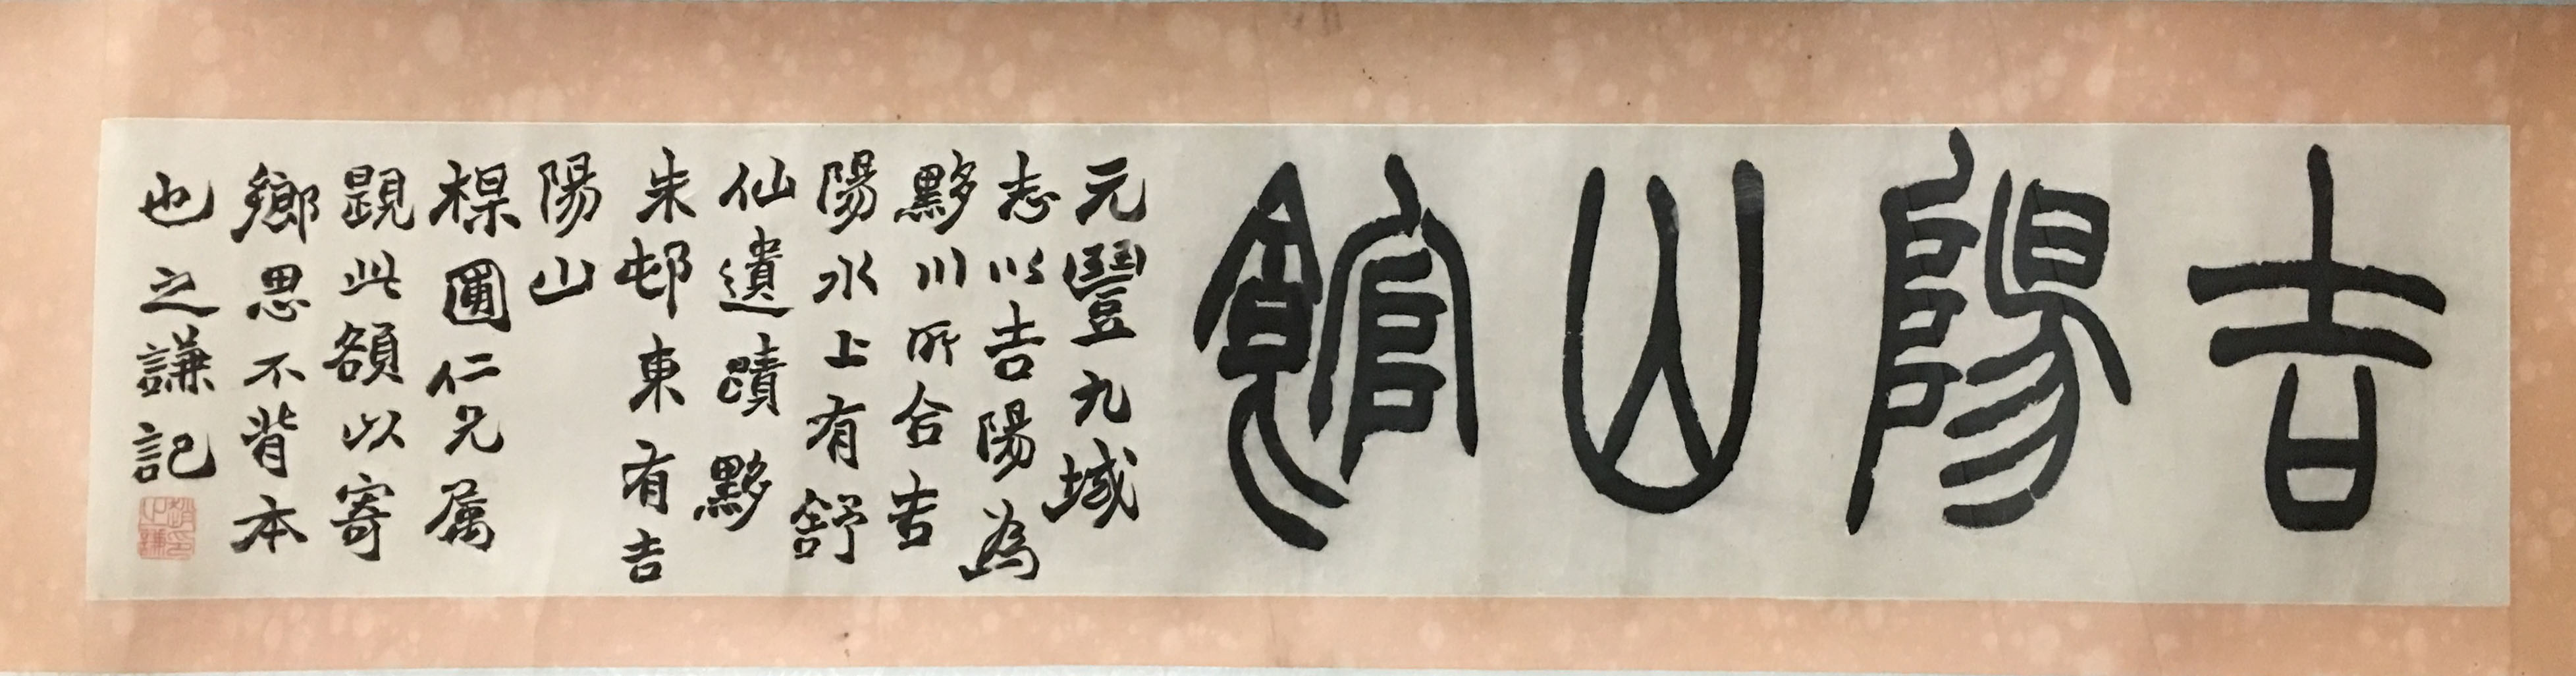 吉陽山館
元豐九域
志以吉陽為
黟川所合吉
陽水上有舒
仙遺蹟黟
朱邨東有吉
陽山
槼圃仁兄屬
題此額以寄
鄉思不背本
也之謙記
趙之謙印